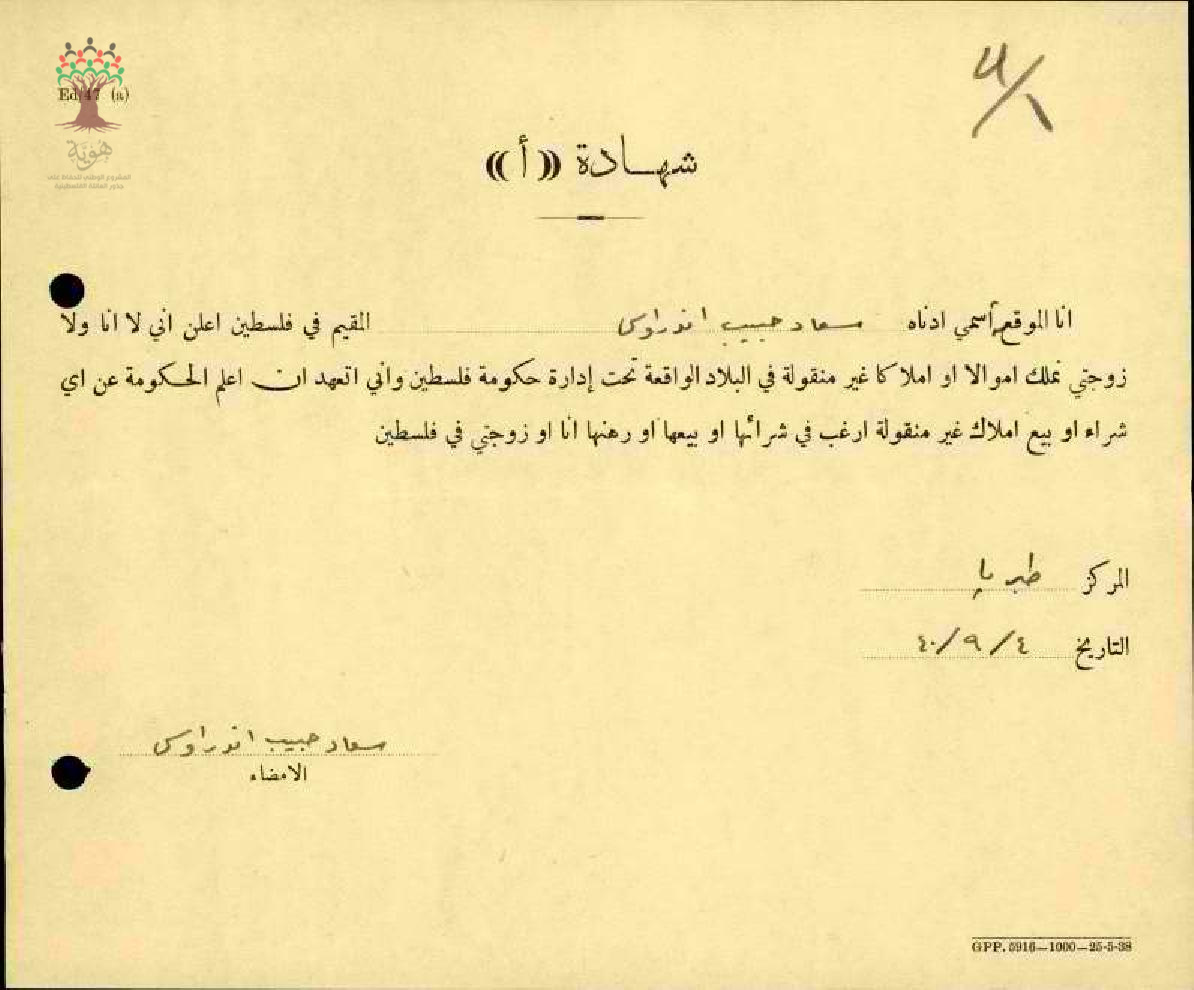 Ed/47 (a)
هوية
المشروع الوطني للحفاظ على
جذور العائلة الفلسطينية
شهادة ((أ))
انا الموقع أسمي ادناه سعاد حبيب اندراوس المقيم في فلسطين اعلن اني لا انا ولا
زوجتي نملك اموالا او املاكا غير منقولة في البلاد الواقعة تحت إدارة حكومة فلسطين واني اتعهد ان اعلم الحكومة عن اي
شراء او بيع املاك غير منقولة ارغب في شرائها او بيعها او رهنها انا او زوجتي في فلسطين
المركز طبريا
التاريخ ٤/٩/٤٠
سعاد حبيب اندراوس
الامضاء
GPP. 5916—1000—25-5-38